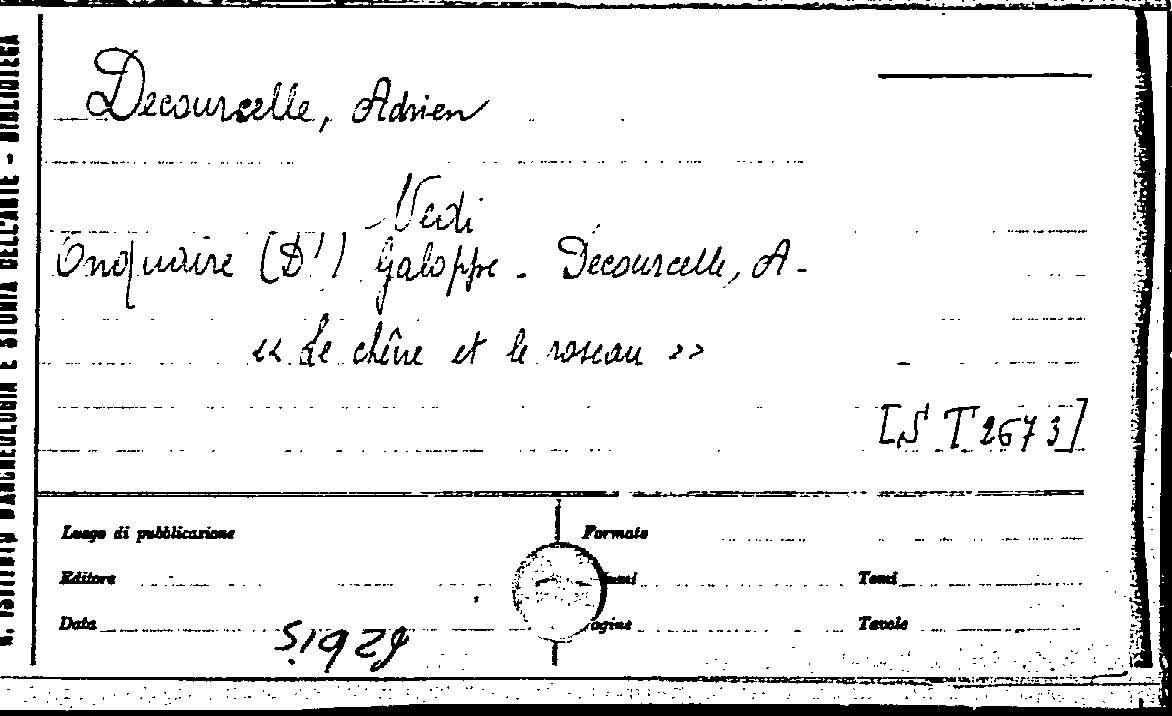 R. ISTITUTO D'ARCHEOLOGIA E STORIA DELL'ARTE - BIBLIOTECA
Decourcelle, Adrien
Vedi
Onquaire (D') Galoppe - Decourcelle, A-
« Le chêne et le roseau »
[S T 2673]
Luogo di pubblicazione
Formato
Editore
Tomi
Data
agine
Tavole